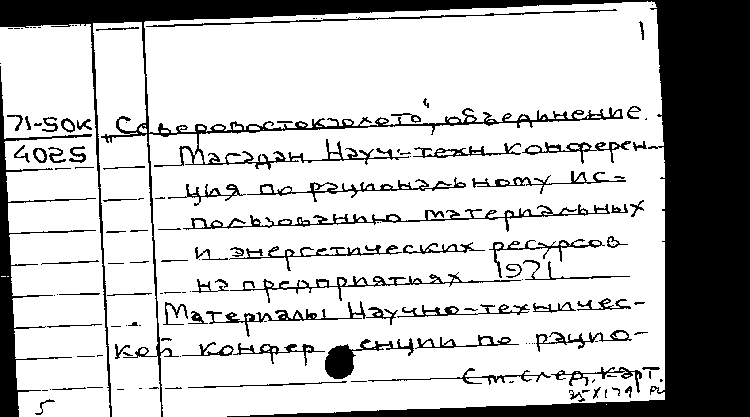 1
71-50к „Северовостокзолото“, объединение.
4025 Магадан. Науч.-техн. конферен-
ция по рациональному ис-
пользованию материальных
и энергетических ресурсов
на предприятиях. 1971.
Материалы Научно-техничес-
кой конференции по рацио-
См. след. карт.
5